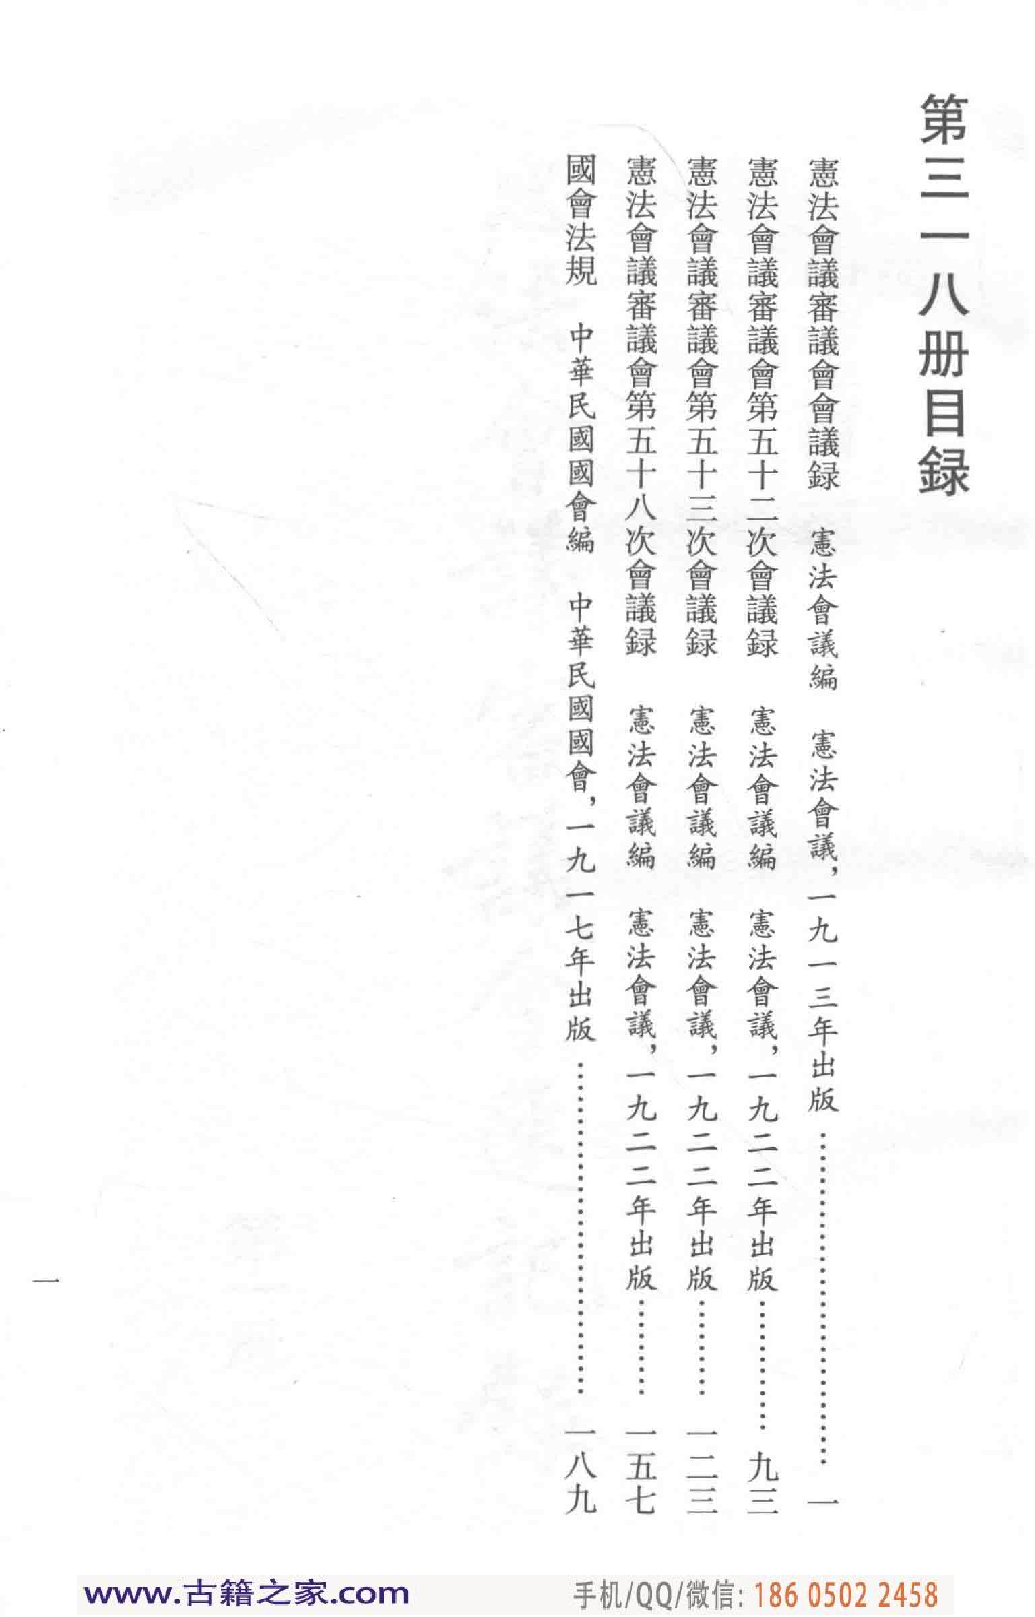 第三一八册目録
憲法會議審議會會議録 憲法會議編 憲法會議，一九一三年出版……………………………一
憲法會議審議會第五十二次會議録 憲法會議編 憲法會議，一九二二年出版…………九三
憲法會議審議會第五十三次會議録 憲法會議編 憲法會議，一九二二年出版………一二三
憲法會議審議會第五十八次會議録 憲法會議編 憲法會議，一九二二年出版………一五七
國會法規 中華民國國會編 中華民國國會，一九一七年出版……………………………一八九
一
www.古籍之家.com 手机/QQ/微信: 186 0502 2458